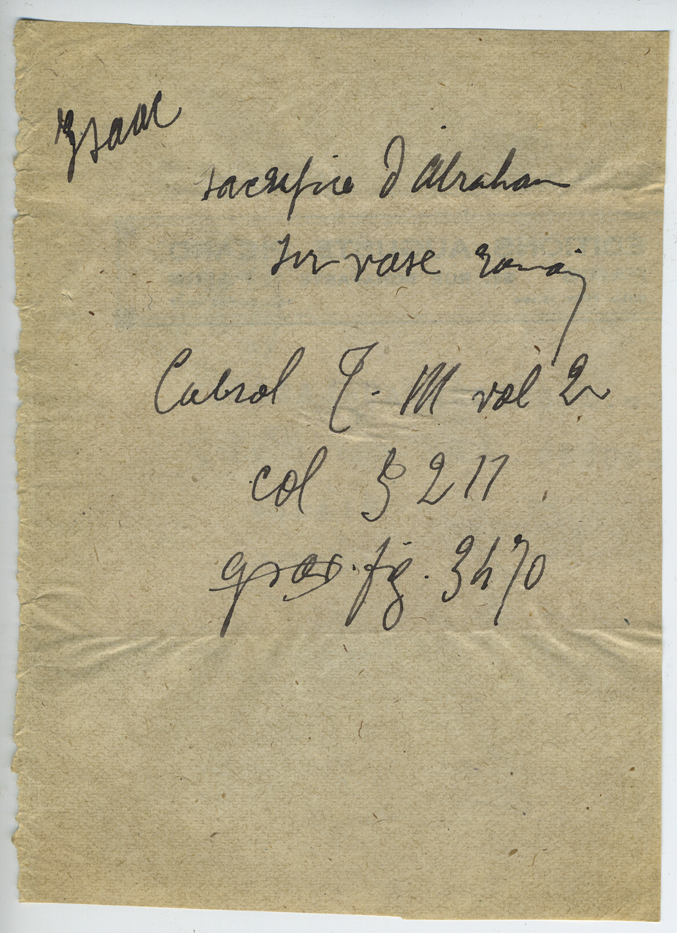 Isaac
sacrifice d'Abraham
sur vase romain
Cabrol T. III vol 2
col 3211
grav. fig. 3470